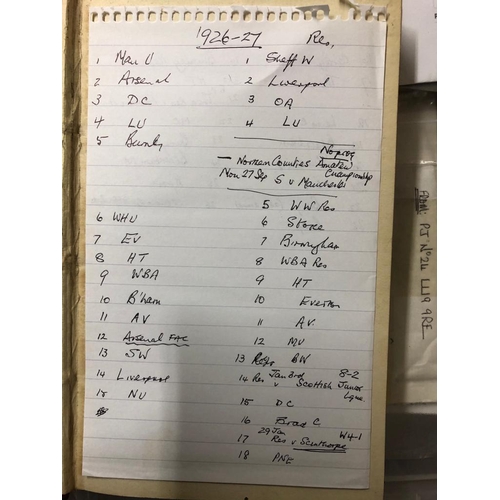 1926-27 Res,
1 Man U 1 Sheff W
2 Arsenal 2 Liverpool
3 DC 3 OA
4 LU 4 LU
5 Burnley
Noprog
— Northern Counties Amateur Championship
Mon 27 Sep S v Manchester
5 WW Res
6 WHU 6 Stoke
7 EV 7 Birmingham
8 HT 8 WBA Res
9 WBA 9 HT
10 B'ham 10 Everton
11 AV 11 AV
12 Arsenal FAC 12 MU
13 SW 13 Res BW
14 Liverpool 14 Res Jan 3rd v Scottish Junior Lgue 8-2
15 NU 15 DC
16 C
29 Jan W4-1
17 Res v Scunthorpe
18 PNE
FROM: PJ No 24 LL19 9RE